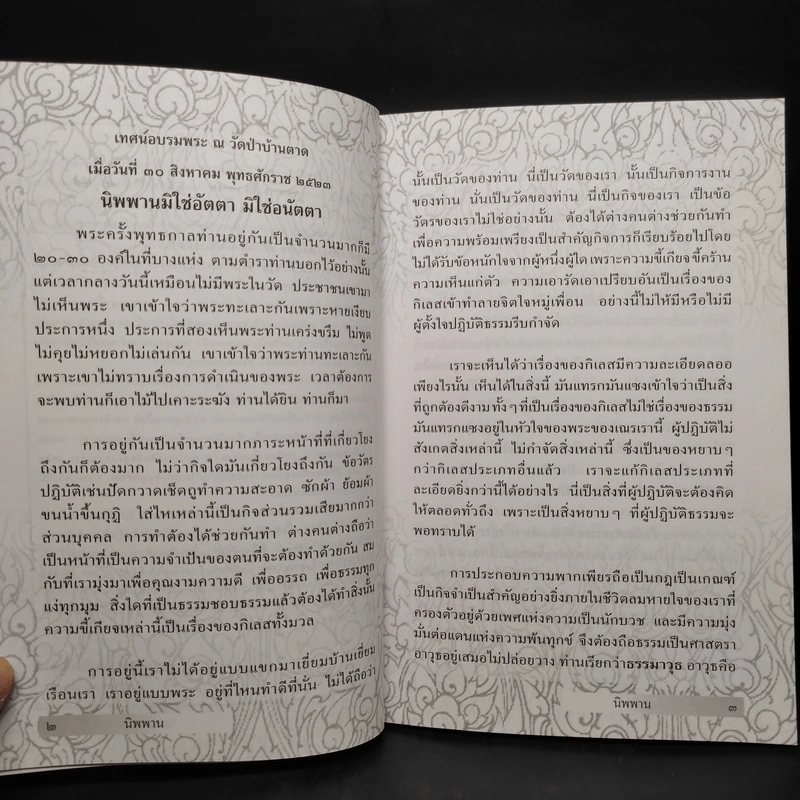 เทศน์อบรมพระ ณ วัดป่าบ้านตาด
เมื่อวันที่ ๓๐ สิงหาคม พุทธศักราช ๒๕๒๓
นิพพานมิใช่อัตตา มิใช่อนัตตา
พระครั้งพุทธกาลท่านอยู่กันเป็นจำนวนมากก็มี
๒๐-๓๐ องค์ในที่บางแห่ง ตามตำราท่านบอกไว้อย่างนั้น
แต่เวลากลางวันนี้เหมือนไม่มีพระในวัด ประชาชนเขามา
ไม่เห็นพระ เขาเข้าใจว่าพระทะเลาะกันเพราะหายเงียบ
ประการหนึ่ง ประการที่สองเห็นพระท่านเคร่งขรึม ไม่พูด
ไม่คุยไม่หยอกไม่เล่นกัน เขาเข้าใจว่าพระท่านทะเลาะกัน
เพราะเขาไม่ทราบเรื่องการดำเนินของพระ เวลาต้องการ
จะพบท่านก็เอาไม้ไปเคาะระฆัง ท่านได้ยิน ท่านก็มา
การอยู่กันเป็นจำนวนมากภาระหน้าที่ที่เกี่ยวโยง
ถึงกันก็ต้องมาก ไม่ว่ากิจใดมันเกี่ยวโยงถึงกัน ข้อวัตร
ปฏิบัติเช่นปัดกวาดเช็ดถูทำความสะอาด ซักผ้า ย้อมผ้า
ขนน้ำขึ้นกุฏิ ใส่ไหเหล่านี้เป็นกิจส่วนรวมเสียมากกว่า
ส่วนบุคคล การทำต้องได้ช่วยกันทำ ต่างคนต่างถือว่า
เป็นหน้าที่เป็นความจำเป็นของตนที่จะต้องทำด้วยกัน สม
กับที่เรามุ่งมาเพื่อคุณงามความดี เพื่ออรรถ เพื่อธรรมทุก
แง่ทุกมุม สิ่งใดที่เป็นธรรมชอบธรรมแล้วต้องได้ทำสิ่งนั้น
ความขี้เกียจเหล่านี้เป็นเรื่องของกิเลสทั้งมวล
การอยู่นี้เราไม่ได้อยู่แบบแขกมาเยี่ยมบ้านเยี่ยม
เรือนเรา เราอยู่แบบพระ อยู่ที่ไหนทำดีที่นั้น ไม่ได้ถือว่า
๒ นิพพาน
นั้นเป็นวัดของท่าน นี่เป็นวัดของเรา นั้นเป็นกิจการงาน
ของท่าน นั่นเป็นวัดของท่าน นี่เป็นกิจของเรา เป็นข้อ
วัตรของเราไม่ใช่อย่างนั้น ต้องได้ต่างคนต่างช่วยกันทำ
เพื่อความพร้อมเพรียงเป็นสำคัญกิจการก็เรียบร้อยไปโดย
ไม่ได้รับข้อหนักใจจากผู้หนึ่งผู้ใด เพราะความขี้เกียจขี้คร้าน
ความเห็นแก่ตัว ความเอารัดเอาเปรียบอันเป็นเรื่องของ
กิเลสเข้าทำลายจิตใจหมู่เพื่อน อย่างนี้ไม่ให้มีหรือไม่มี
ผู้ตั้งใจปฏิบัติธรรมรีบกำจัด
เราจะเห็นได้ว่าเรื่องของกิเลสมีความละเอียดลออ
เพียงไรนั้น เห็นได้ในสิ่งนี้ มันแทรกมันแซงเข้าใจว่าเป็นสิ่ง
ที่ถูกต้องดีงาม ทั้งๆที่เป็นเรื่องของกิเลสไม่ใช่เรื่องของธรรม
มันแทรกแซงอยู่ในหัวใจของพระของเณรเรานี้ ผู้ปฏิบัติไม่
สังเกตสิ่งเหล่านี้ ไม่กำจัดสิ่งเหล่านี้ ซึ่งเป็นของหยาบๆ
กว่ากิเลสประเภทอื่นแล้ว เราจะแก้กิเลสประเภทที่
ละเอียดยิ่งกว่านี้ได้อย่างไร นี่เป็นสิ่งที่ผู้ปฏิบัติจะต้องคิด
ให้ตลอดทั่วถึง เพราะเป็นสิ่งหยาบๆ ที่ผู้ปฏิบัติธรรมจะ
พอทราบได้
การประกอบความพากเพียรถือเป็นกฎเป็นเกณฑ์
เป็นกิจจำเป็นสำคัญอย่างยิ่งภายในชีวิตลมหายใจของเราที่
ครองตัวอยู่ด้วยเพศแห่งความเป็นนักบวช และมีความมุ่ง
มั่นต่อแดนแห่งความพ้นทุกข์ จึงต้องถือธรรมเป็นศาสตรา
อาวุธอยู่เสมอไม่ปล่อยวาง ท่านเรียกว่าธรรมาวุธ อาวุธคือ
นิพพาน ๓